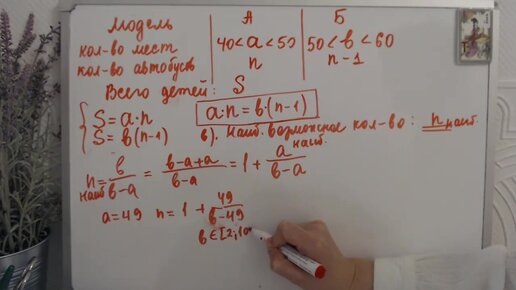 Модель А Б
кол-во мест 40<a<50 50<b<60
кол-во автобусов n n-1
Всего детей: S
{ S=a·n
S=b(n-1)
a·n=b·(n-1)
в). Наиб. возможное кол-во: n наиб.
n наиб = b/(b-a) = (b-a+a)/(b-a) = 1 + a наиб/(b-a)
a=49 n=1+49/(b-49)
b∈[2;10